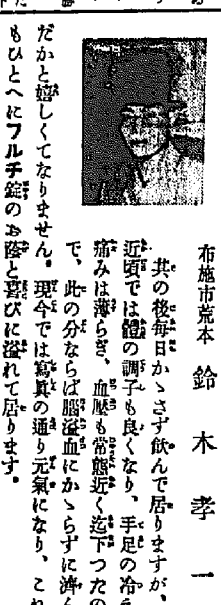 布施市荒本 鈴木孝一
其の後毎日かゝさず飲んで居りますが、
近頃では體の調子も良くなり、手足の冷え
痛みは薄らぎ、血壓も常態近く迄下つたの
で、此の分ならば腦溢血にかゝらずに濟ん
だかと嬉しくてなりません。現今では寫眞の通り元氣になり、これ
もひとへにフルチ錠のお陰と喜びに溢れて居ります。